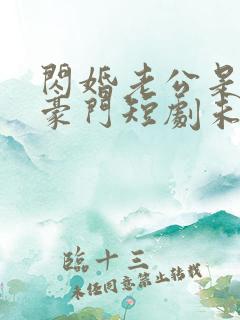 閃婚老公呆
豪門短劇未
臨十三
未任同意禁止转载